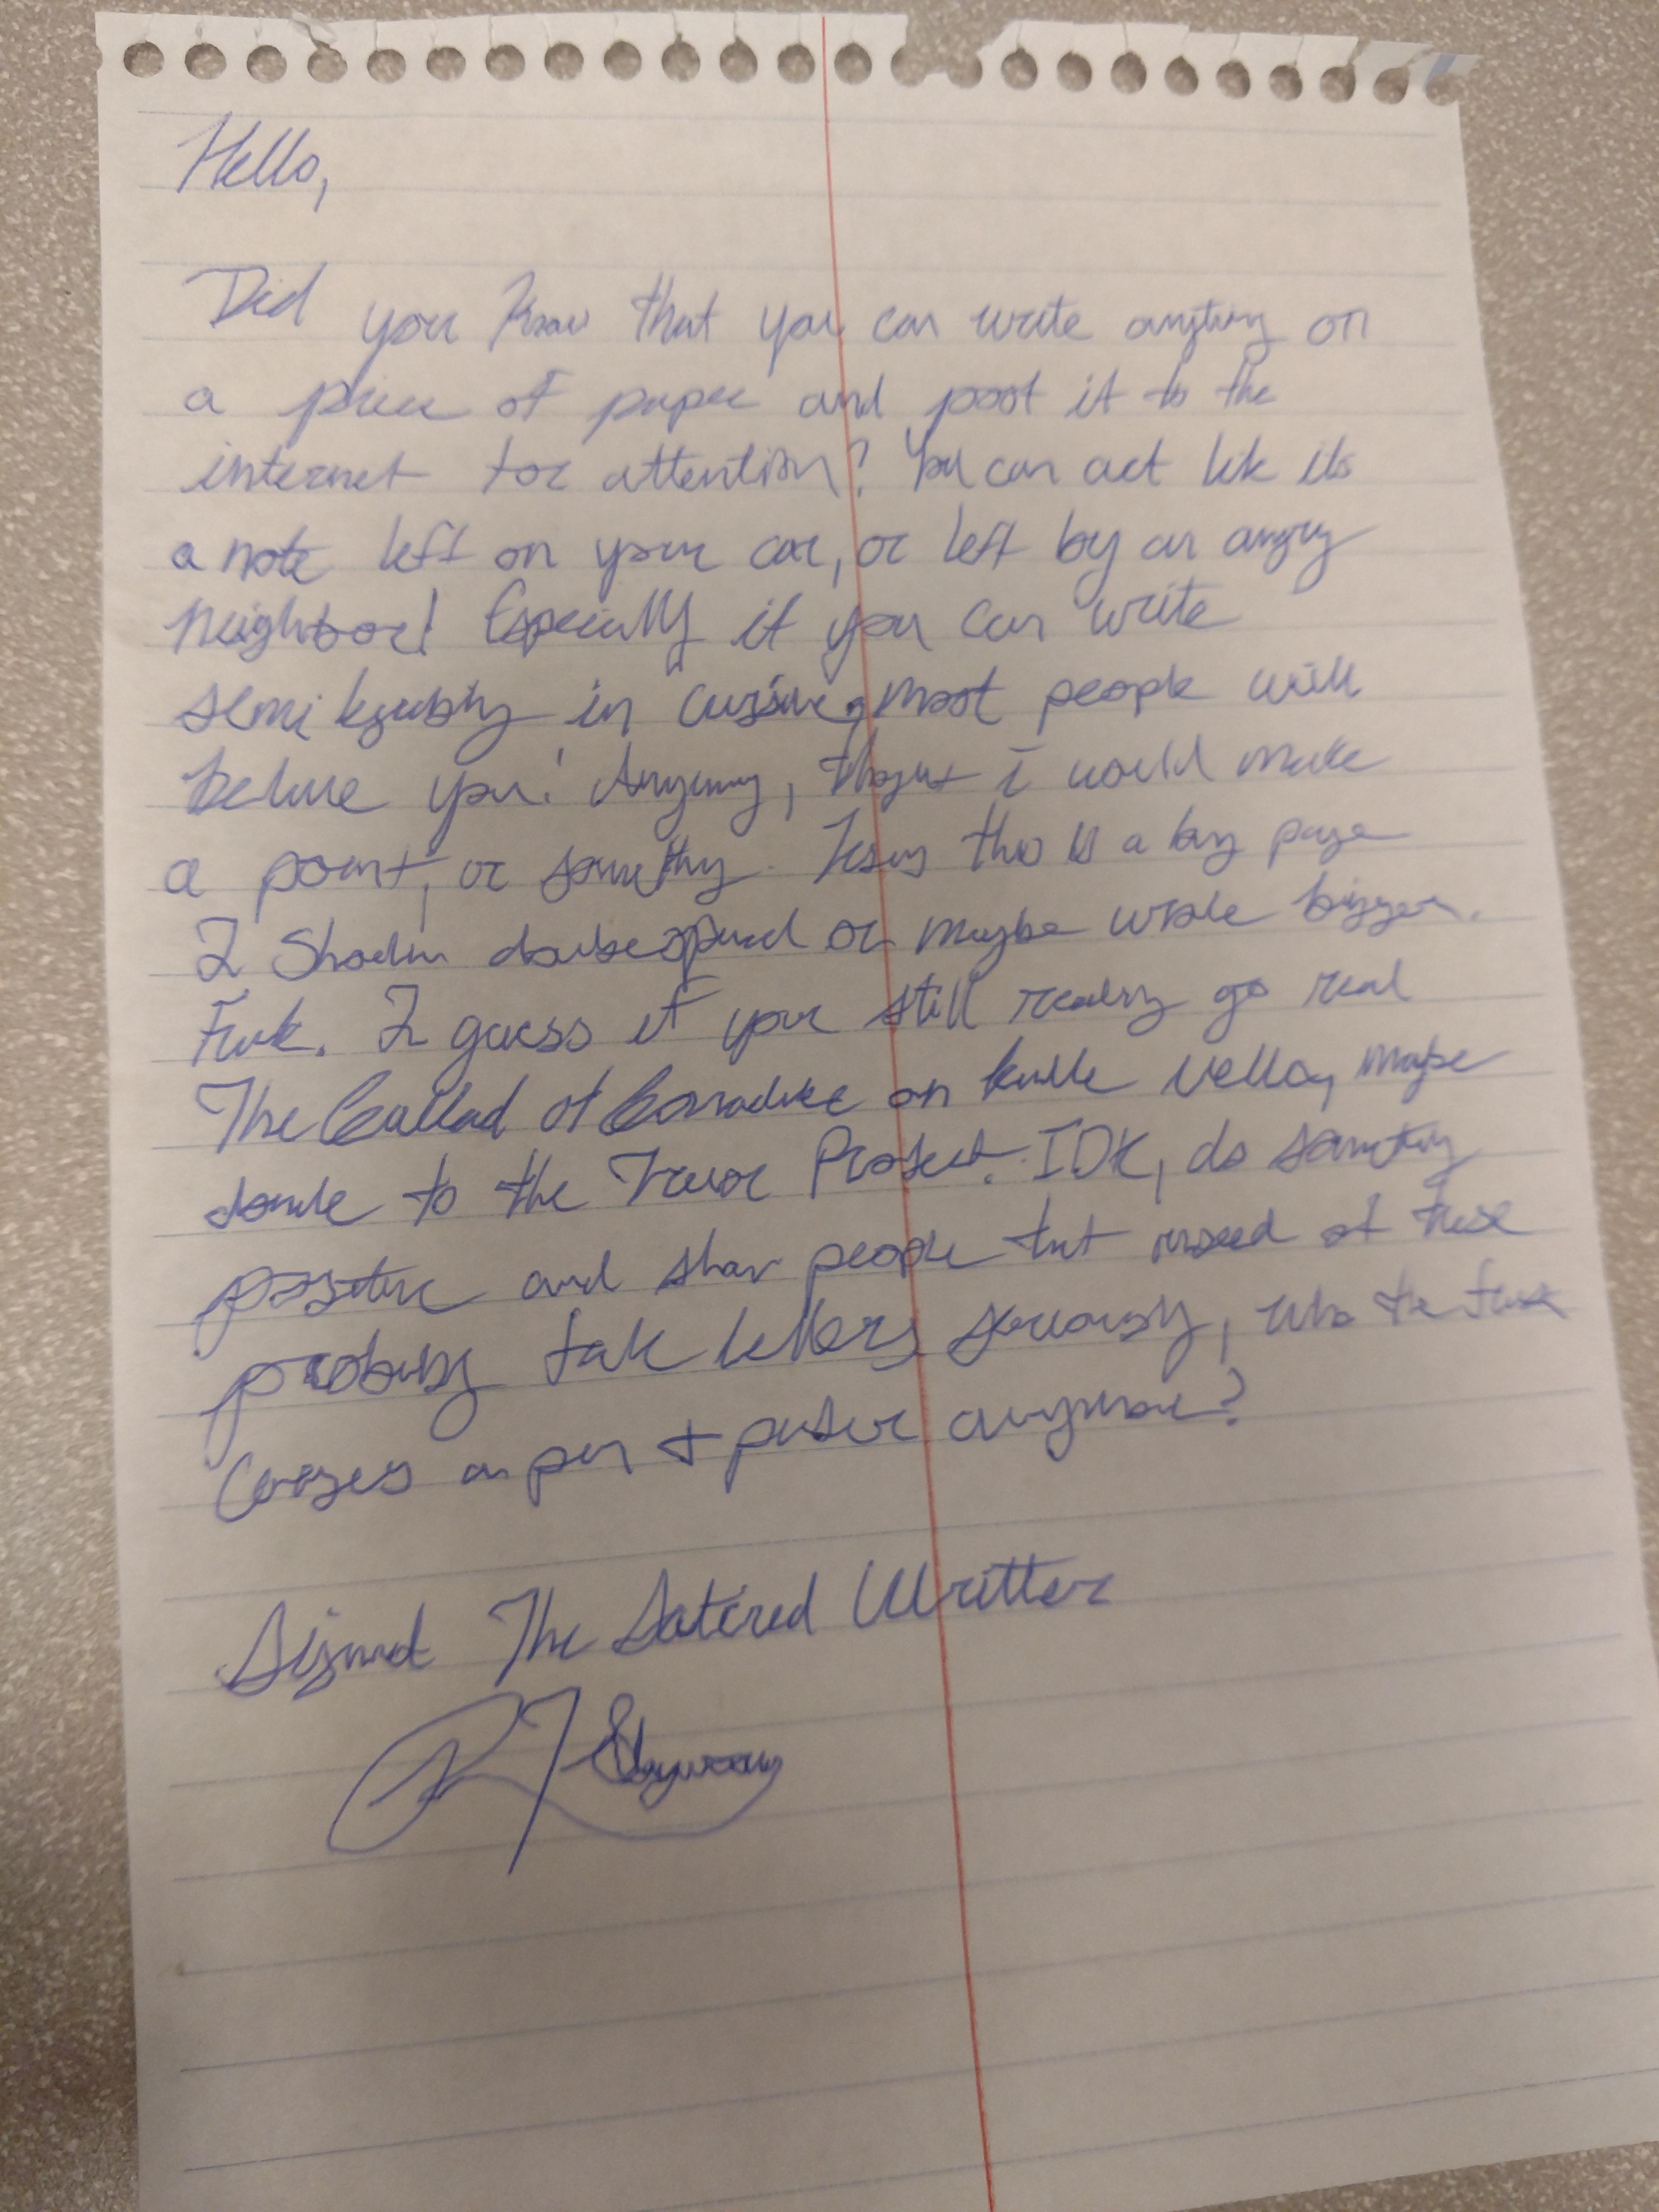 Hello,
Did you know that you can write anything on
a piece of paper and post it to the
internet for attention? You can act like its
a note left on your car, or left by an angry
neighbor! Especially if you can write
semi legibly in cursive, most people will
believe you! Anyway, thought i would make
a point, or something. Jesus this is a long page
I should doublespaced or maybe wrote bigger.
Fuck. I guess if your still reading go read
The Ballad of on kindle vella, maybe
donate to the Trevor Project. IDK, do something
positive and show people that instead of these
probably fake letters seriously, who the fuck
carries a pen + paper anymore?
Signed The Satired Writter
RJ